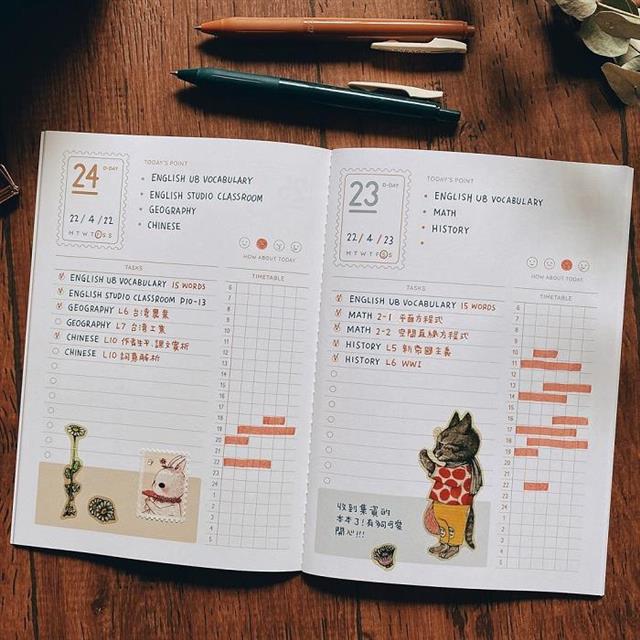 24 D-DAY
22/4/22
M T W T F S S
TODAY'S POINT
• ENGLISH UB VOCABULARY
• ENGLISH STUDIO CLASSROOM
• GEOGRAPHY
• CHINESE
HOW ABOUT TODAY
TASKS
TIMETABLE
ENGLISH UB VOCABULARY 15 WORDS
ENGLISH STUDIO CLASSROOM P10-13
GEOGRAPHY L6 台灣農業
GEOGRAPHY L7 台灣工業
CHINESE L10 作者生平.課文賞析
CHINESE L10 詞意解析
6
7
8
9
10
11
12
13
14
15
16
17
18
19
20
21
22
23
24
1
2
3
4
5
23 D-DAY
22/4/23
M T W T F S S
TODAY'S POINT
• ENGLISH UB VOCABULARY
• MATH
• HISTORY
HOW ABOUT TODAY
TASKS
TIMETABLE
ENGLISH UB VOCABULARY 15 WORDS
MATH 2-1 平面方程式
MATH 2-2 空間直線方程式
HISTORY L5 新帝國主義
HISTORY L6 WWI
6
7
8
9
10
11
12
13
14
15
16
17
18
19
20
21
22
23
24
1
2
3
4
5
收到集資的
本本3!有夠可愛
開心!!!